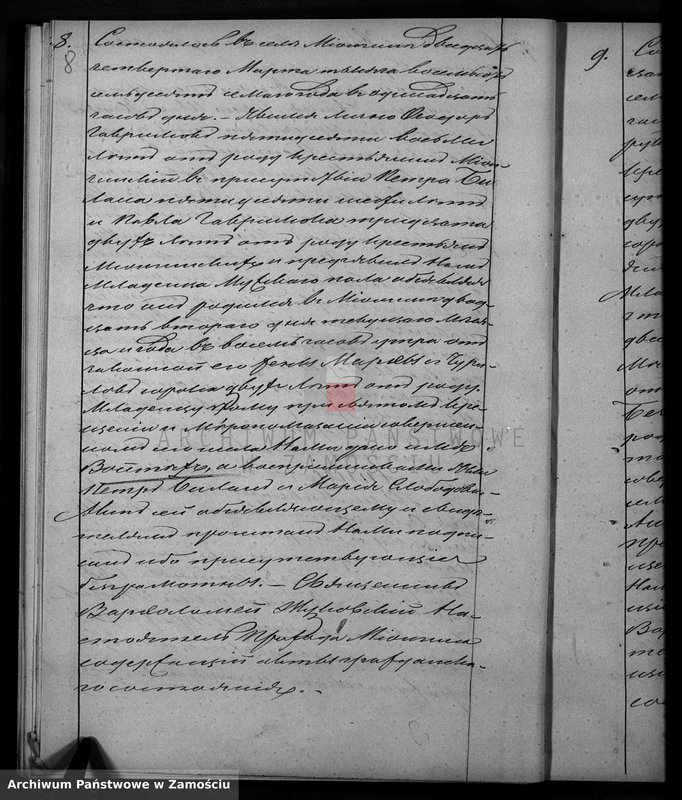 8. Состоялось въ селѣ Міончинѣ двадцать
8 четвертаго Марта тысяча восемьсотъ
семьдесятъ седьмаго года въ одинадцать
часовъ дня. – Явился лично Ѳеодоръ
Гавриловъ пятидесяти восьми
лѣтъ отъ роду крестьянинъ Міон-
чинскій въ присутствіи Петра Би
ланa пятидесяти лѣтъ
и Павла Гаврилова тридцати
двухъ лѣтъ отъ роду крестьянъ
Міончинскихъ и предъявилъ Намъ
Младенца Мужескаго пола объявляя
что онъ родился въ Міончинѣ двад
цать втораго дня текущаго Мѣся-
ца и года въ восемь часовъ утра отъ
законной его жены Маріи съ Чури-
ловъ сорока двухъ лѣтъ отъ роду.
Младенцу этому при святомъ Кре-
щеніи и Мѵропомазаніи совершен-
номъ сего числа Нами дано имя
а воспріемниками были
Петръ Биланъ и Марія
Актъ сей объявляющему и свидѣ-
телямъ прочитанъ Нами подпи-
санъ ибо присутствующіе
безграмотны. – Священникъ
Варѳоломей На-
стоятель Прихода Міончина
содержащій акты гражданска-
го состоянія. –
9.
ARCHIWUM PAŃSTWOWE
W ZAMOŚCIU
Archiwum Państwowe w Zamościu